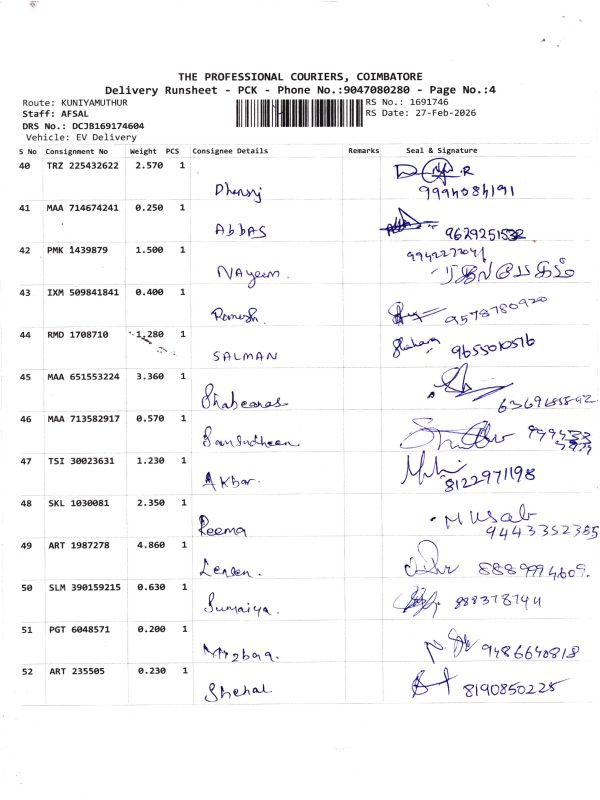 THE PROFESSIONAL COURIERS, COIMBATORE
Delivery Runsheet - PCK - Phone No.:9047080280 - Page No.:4
Route: KUNIYAMUTHUR RS No.: 1691746
Staff: AFSAL RS Date: 27-Feb-2026
DRS No.: DCJB169174604
Vehicle: EV Delivery
S No Consignment No Weight PCS Consignee Details Remarks Seal & Signature
40 TRZ 225432622 2.570 1
9994084191
41 MAA 714674241 0.250 1
ABBAS
42 PMK 1439879 1.500 1
NAyeem.
43 IXM 509841841 0.400 1
Ramesh. 9578780920
44 RMD 1708710 1.280 1
SALMAN 9655010576
45 MAA 651553224 3.360 1
46 MAA 713582917 0.570 1
47 TSI 30023631 1.230 1
Akbar. 8122971198
48 SKL 1030081 2.350 1
Musab
Reema 9443352385
49 ART 1987278 4.860 1
8889994609.
50 SLM 390159215 0.630 1
Sumaiya.
51 PGT 6048571 0.200 1
9486640818
52 ART 235505 0.230 1
8190850225